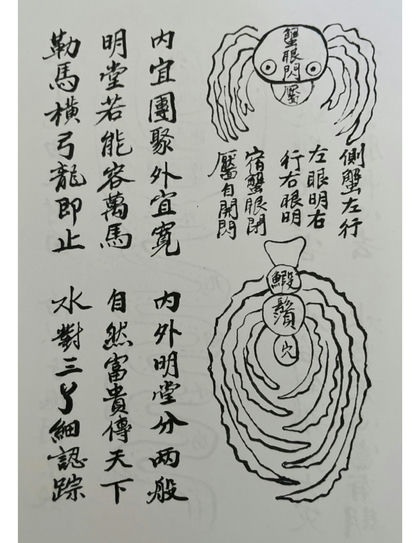 蟹眼閃
靨
側蟹左行
左眼明右
行右眼明
宿蟹眼閉
靨自開閃
蝦
鬚
穴
內宜團聚外宜寬 內外明堂分两般
明堂若能容萬馬 自然富貴傳天下
勒馬橫弓龍即止 水對三丫細認踪